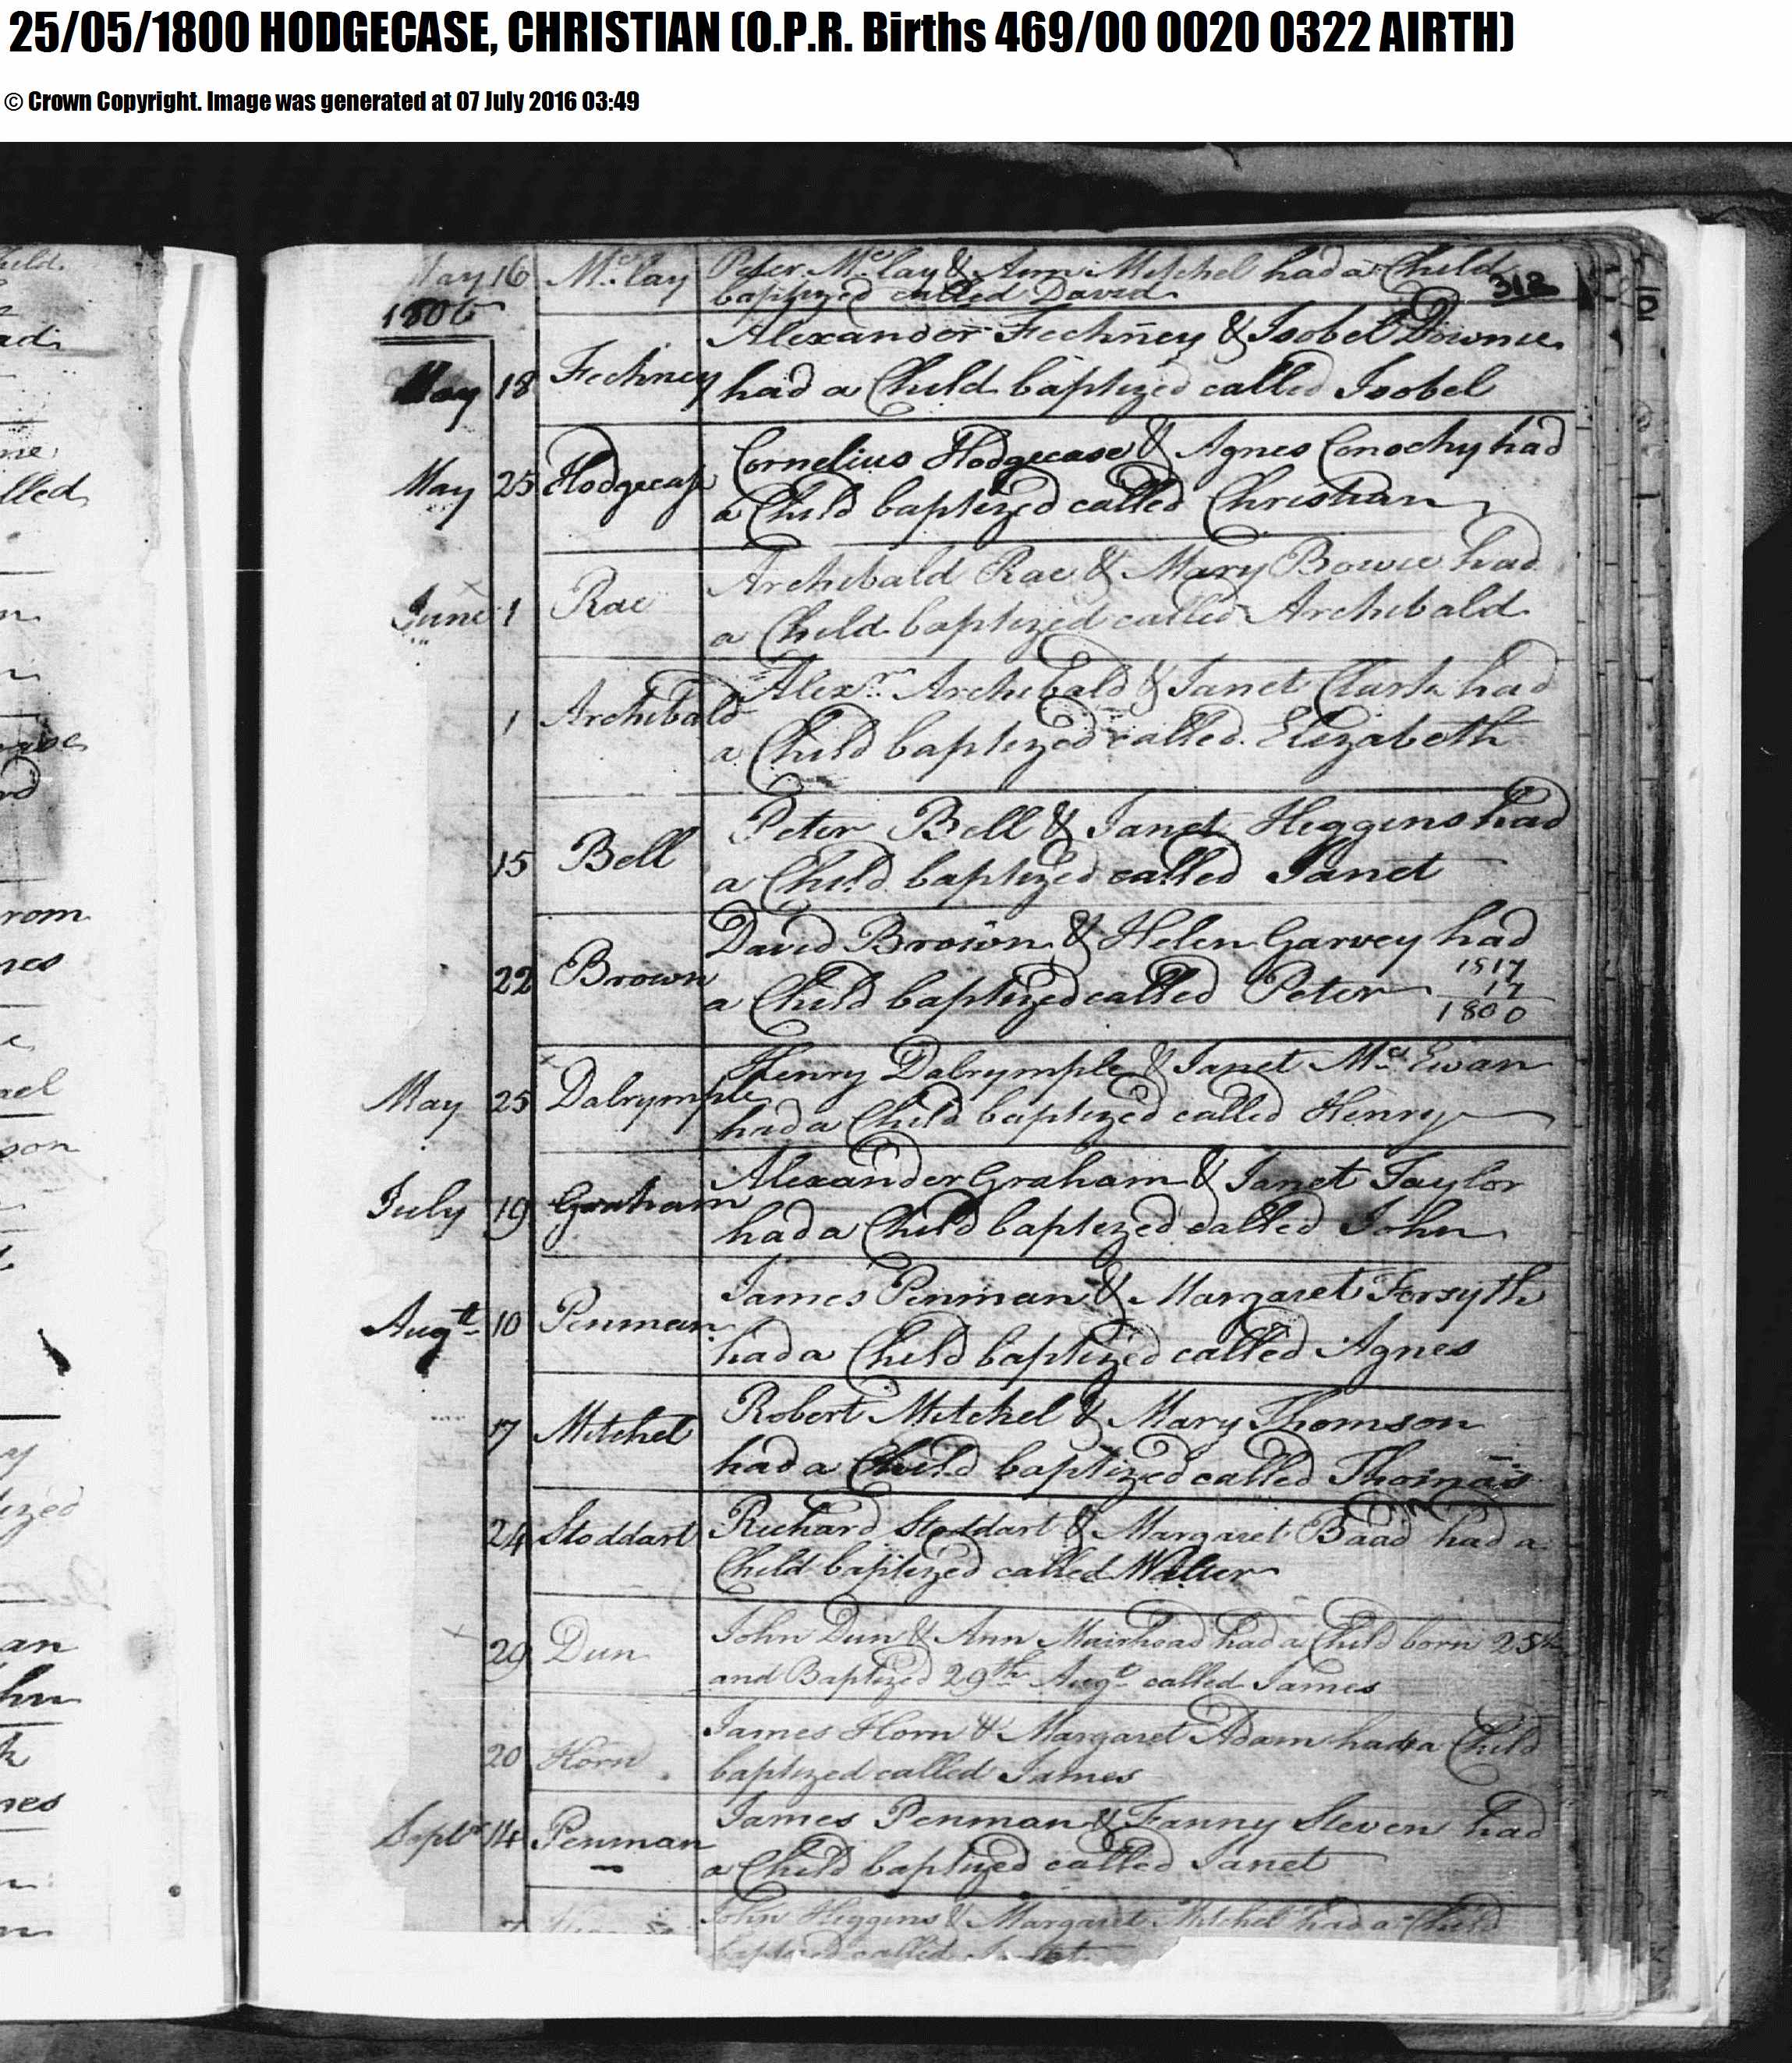 25/05/1800 HODGECASE, CHRISTIAN (O.P.R. Births 469/00 0020 0322 AIRTH)
© Crown Copyright. Image was generated at 07 July 2016 03:49
May 16 McLay Peter McLay & Ann Mitchel had a Child
baptized called David
312
1800
May 18 Fechney Alexander Fechney & Isobel Downie
had a Child baptized called Isobel
May 25 Hodgecase Cornelius Hodgecase & Agnes Conochy had
a Child baptized called Christian
June 1 Rae Archibald Rae & Mary Bowie had
a Child baptized called Archibald
1 Archibald Alexr. Archibald & Janet Clark had
a Child baptized called Elizabeth
15 Bell Peter Bell & Janet Higgins had
a Child baptized called Janet
22 Brown David Brown & Helen Garvey had
a Child baptized called Peter
1817
17
1800
May 25 Dalrymple Henry Dalrymple & Janet McEwan
had a Child baptized called Henry
July 19 Graham Alexander Graham & Janet Taylor
had a Child baptized called John
Augt. 10 Penman James Penman & Margaret Forsyth
had a Child baptized called Agnes
17 Mitchel Robert Mitchel & Mary Thomson
had a Child baptized called Thomas
24 Stoddart Richard Stoddart & Margaret Baad had a
Child baptized called Walter
29 Dun John Dun & Ann Muirhead had a Child born 25th
and Baptized 29th Augt. called James
20 Horn James Horn & Margaret Adam had a Child
baptized called James
Septr 14 Penman James Penman & Fanny Steven had
a Child baptized called Janet
John Higgins & Margaret Mitchel had a Child
baptized called